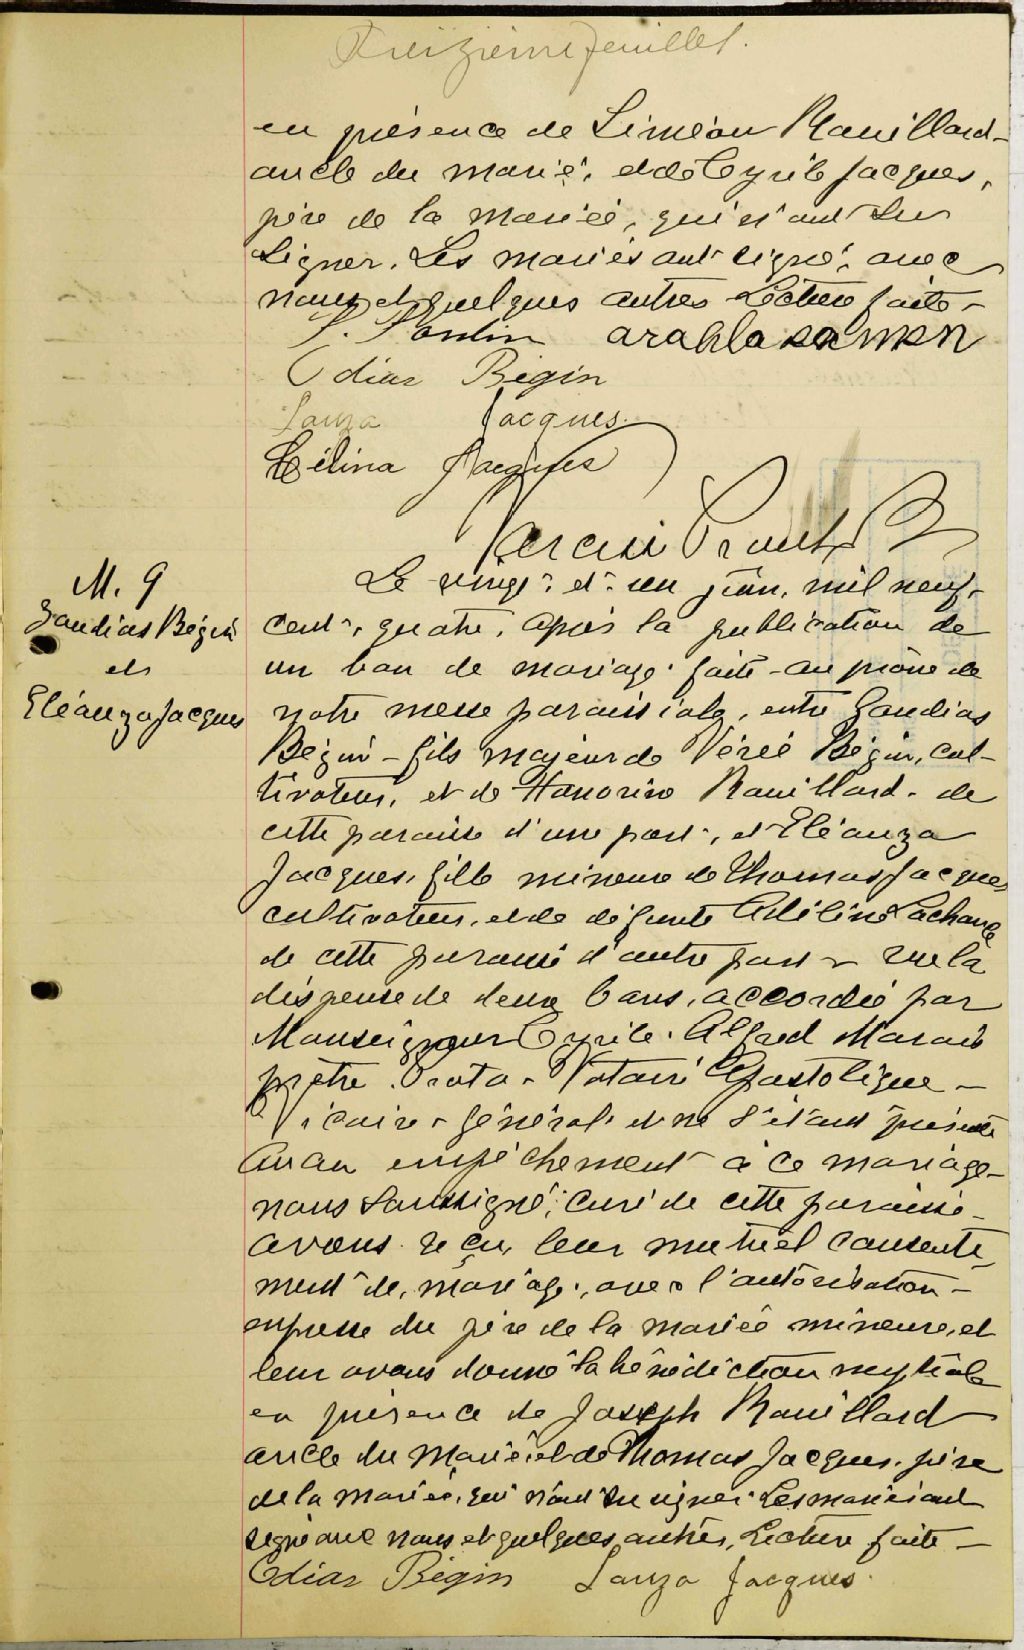 Treizième feuillet.
en présence de Siméon Rouillard
oncle du marié, et de Cyrile Jacques,
père de la mariée, qui n'ont su
signer. Les mariés ont signé, avec
nous et quelques autres Lecture faite -
Odias Bégin
Lauza Jacques.
Célina Jacques
M. 9
Gaudias Bégin
et
Eléauza Jacques
Le vingt et un juin, mil neuf-
cent, quatre, après la publication de
un ban de mariage faite au prône de
notre messe paroissiale, entre Gaudias
Bégin - fils majeur de Vérié Bégin, cul-
tivateur, et de Honorine Rouillard - de
cette paroisse d'une part, et Eléauza
Jacques, fille mineure de Thomas Jacques
cultivateur, et de défunte Adéline Lachance
de cette paroisse d'autre part - vu la
dispense de deux bans, accordée par
Monseigneur Cyrile Alfred Marois
prêtre Proto-Notaire Apostolique -
Vicaire - général et ne s'étant présenté
aucun empêchement à ce mariage -
nous soussigné, curé de cette paroisse -
avons reçu leur mutuel consente-
ment de mariage, avec l'autorisation -
expresse du père de la mariée mineure, et
leur avons donné la bénédiction nuptiale
en présence de Joseph Rouillard
oncle du marié et de Thomas Jacques, père
de la mariée, qui n'ont su signer. Les mariés ont
signé avec nous et quelques autres, Lecture faite -
Odias Bégin Lauza Jacques